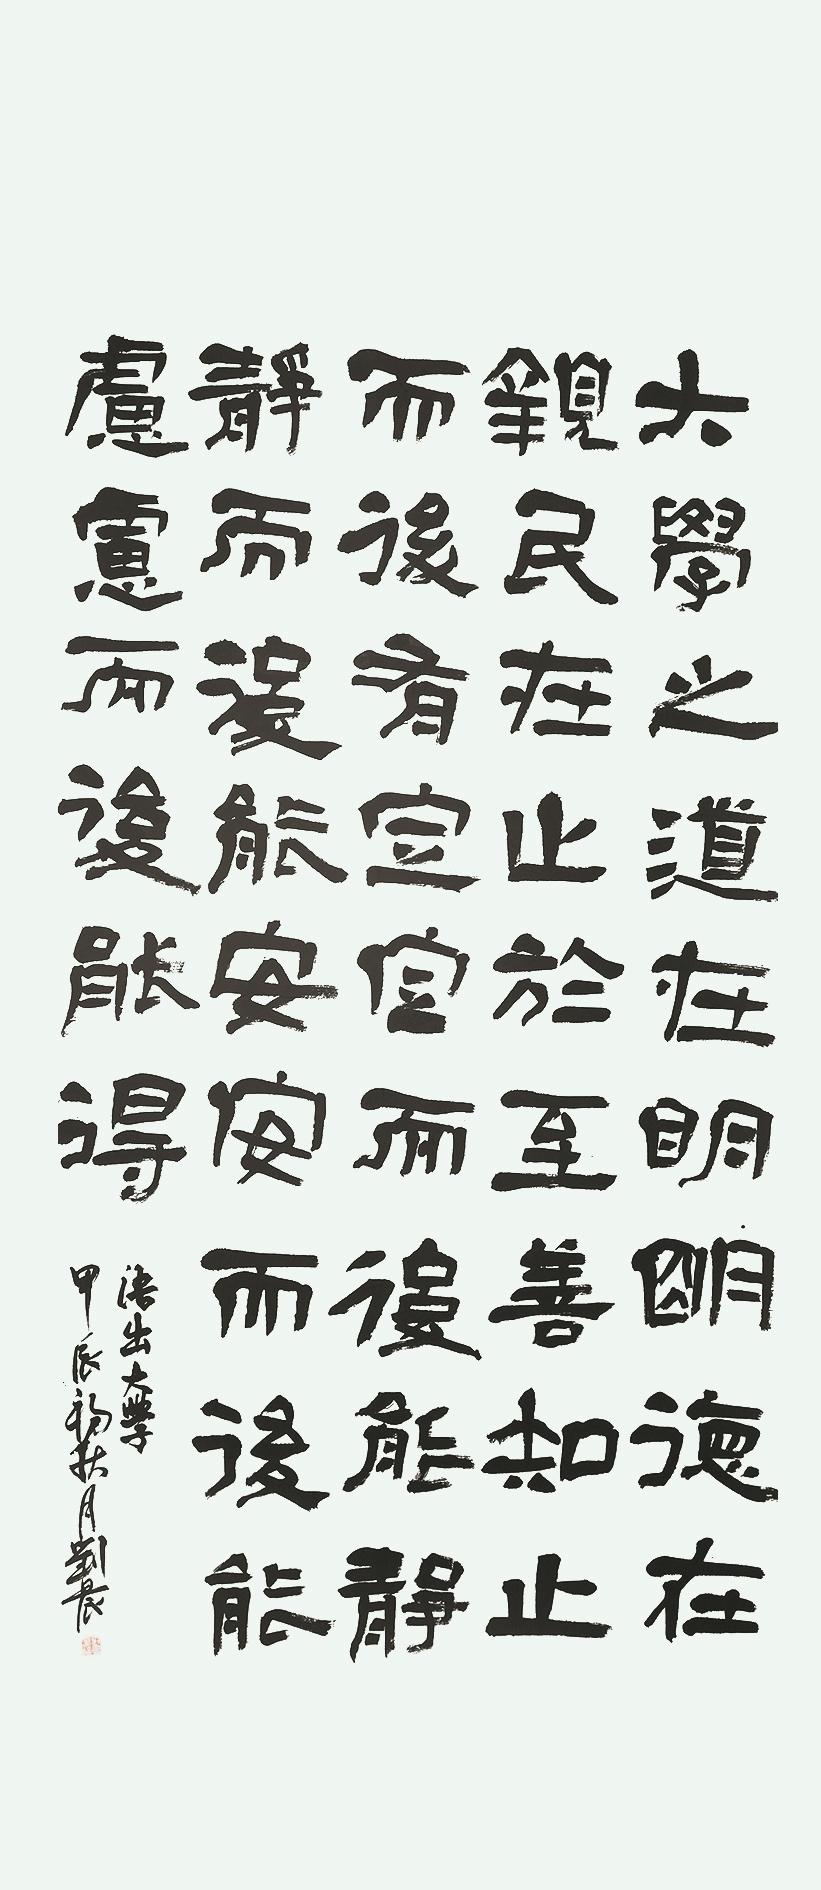 大學之道在明明德在
親民在止於至善知止
而後有定定而後能靜
靜而後能安安而後能
慮慮而後能得
語出大學
甲辰初秋月劉辰